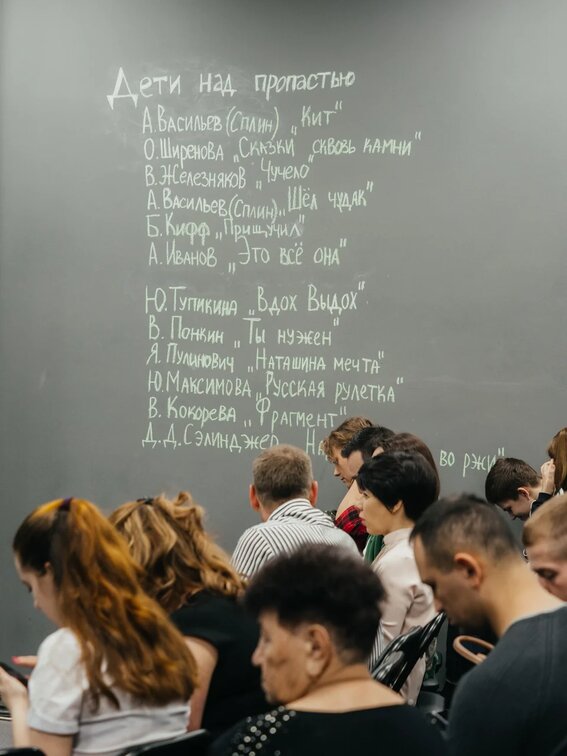 Дети над пропастью
А.Васильев (Сплин) „Кит"
О.Ширенова „Сказки сквозь камни"
В.Железняков „Чучело"
А.Васильев (Сплин) „Шёл чудак"
Б.Кифф „Прищучил"
А.Иванов „Это всё она"
Ю.Тупикина „Вдох Выдох"
В.Понкин „Ты нужен"
Я.Пулинович „Наташина мечта"
Ю.Максимова „Русская рулетка"
В.Кокорева „Фрагмент"
Д.Д.Сэлинджер во ржи"